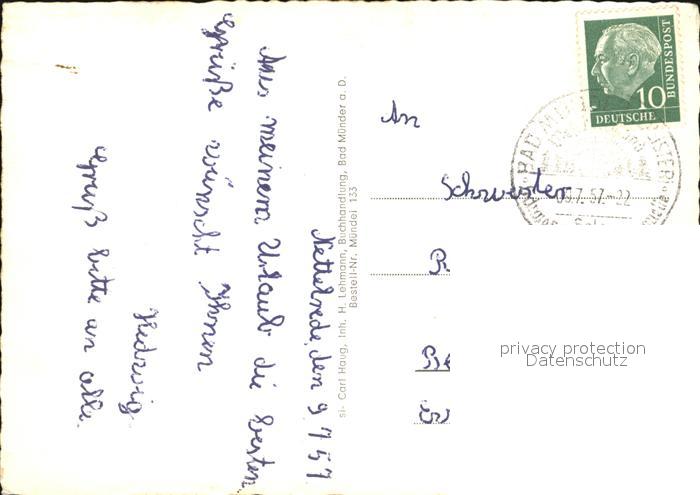 Nettelrede, den 9.7.57
Aus meinem Urlaub die besten
Grüße wünscht Ihnen
Hedwig
Gruß bitte an alle.
si- Carl Haug, Inh. H. Lehmann, Buchhandlung, Bad Münder a. D.
Bestell-Nr. Mündel 133
An
Schwester
10
DEUTSCHE
BUNDESPOST
BAD MÜ
7.57.-22
privacy protection
Datenschutz